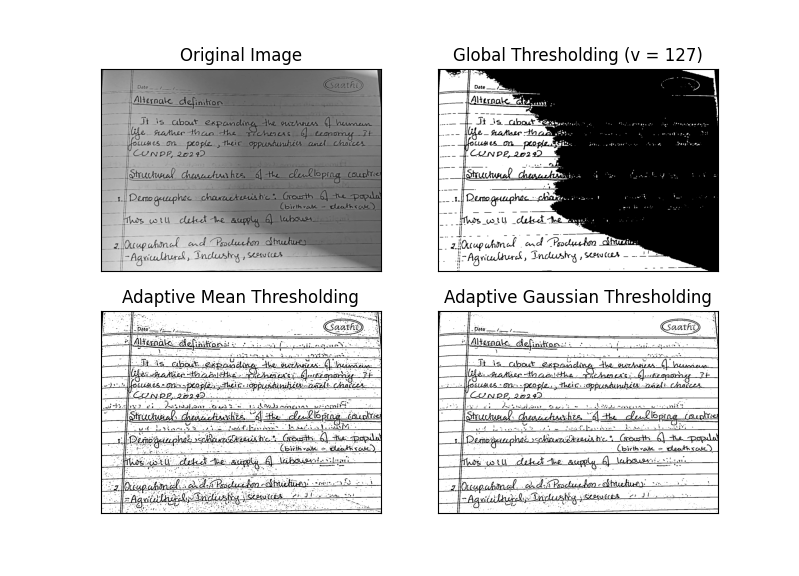 Original Image
Date
saathi
Alternate definition
It is about expanding the richness of human
life rather than the richness of economy it
focuses on people, their opportunities and choices
(UNDP,
Structural characteristics of the developing countries
1. Demographic characteristic: Growth of the popula
(birthrate - deathrate)
This will detect the supply of labour
2. Occupational and Production structure
-Agricultural, Industry, services
Global Thresholding (v = 127)
Date
Alternate
It is about expanding
life rather than the
focuses on people, their
(UNDP,
Structural characteristics
1. Demographic
This will detect the
2. Occupational and Production structure
-Agricultural, Industry, services
Adaptive Mean Thresholding
Date
saathi
Alternate definition
It is about expanding the richness of human
life rather than the richness of economy it
focuses on people, their opportunities and choices
(UNDP,
Structural characteristics of the developing countries
1. Demographic characteristic: Growth of the popula
(birthrate - deathrate)
This will detect the supply of labour
2. Occupational and Production structure
-Agricultural, Industry, services
Adaptive Gaussian Thresholding
Date
saathi
Alternate definition
It is about expanding the richness of human
life rather than the richness of economy it
focuses on people, their opportunities and choices
(UNDP,
Structural characteristics of the developing countries
1. Demographic characteristic: Growth of the popula
(birthrate - deathrate)
This will detect the supply of labour
2. Occupational and Production structure
-Agricultural, Industry, services